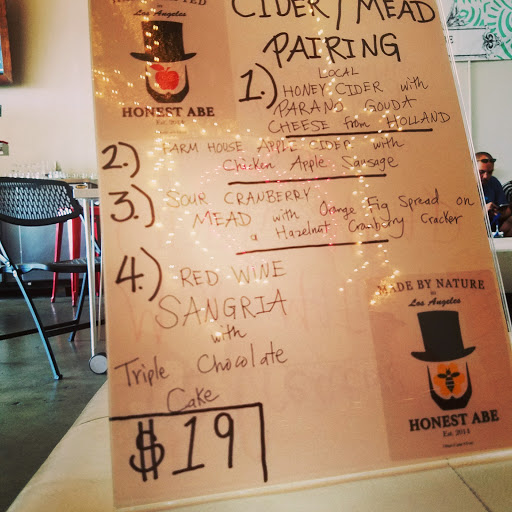 Los Angeles
HONEST ABE
CIDER / MEAD
PAIRING
1.) LOCAL
HONEY CIDER with
PARANO GOUDA
CHEESE from HOLLAND
2.) FARM HOUSE APPLE CIDER with
Chicken Apple Sausage
3.) SOUR CRANBERRY
MEAD with Orange Fig Spread on
a Hazelnut Cranberry Cracker
4.) RED WINE
SANGRIA
with
Triple Chocolate
Cake
$19
MADE BY NATURE
in
Los Angeles
HONEST ABE
Est. 2014